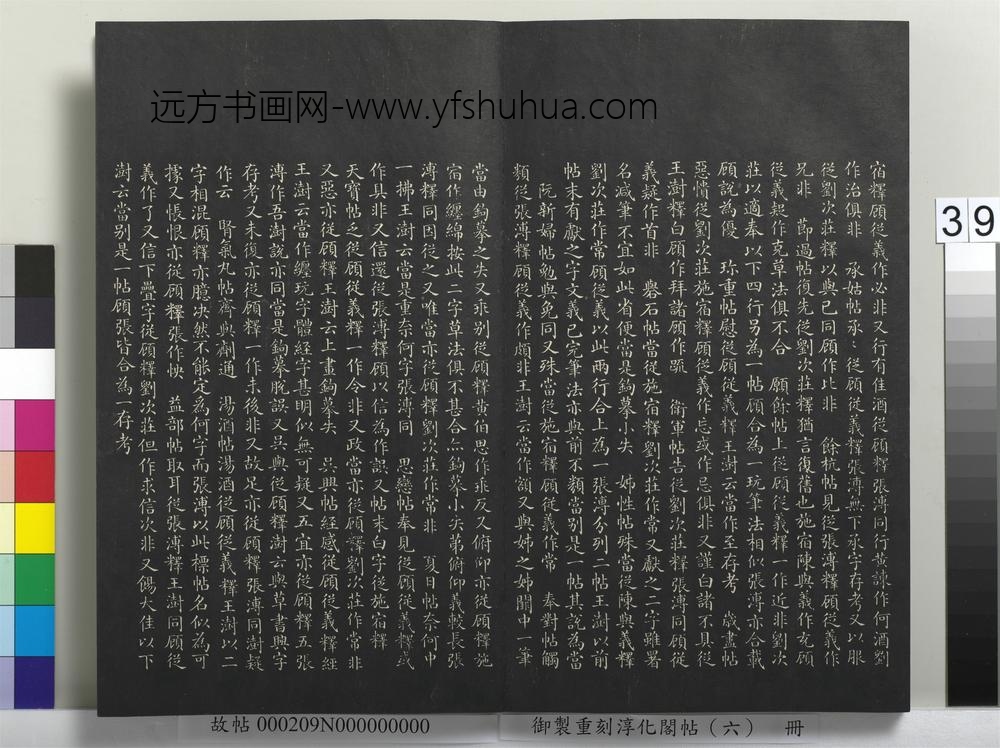 远方书画网-www.yfshuhua.com
39
宿釋顧從義作必非又行有佳酒從顧釋張溥同行黃諫作何酒劉
作治俱非 承姑帖承從顧從義釋張溥無下承字存考又以服
從劉次莊釋以與已同顧作比非 餘杭帖見從張溥釋顧從義作
兄非 節過帖復先從劉次莊釋猶言復舊也施宿陳與義作充顧
從義疑作克草法俱不合 願餘帖上從顧從義釋一作近非劉次
莊以適奉以下四行另為一帖顧合為一玩筆法相似張溥亦合載
顧說為優 珎重帖慰從顧從義釋王澍云當作至存考 歲盡帖
惡憒從劉次莊施宿釋顧從義作忘或作忌俱非又謹白諸不具從
王澍釋白顧作拜諸顧作䟽 衛軍帖告從劉次莊釋張溥同顧從
義疑作首非 礜石帖當從施宿釋劉次莊作常又獻之二字雖署
名減筆不宜如此省便當是鉤摹小失 姊性帖殊當從陳與義釋
劉次莊作常顧從義以此兩行合上為一張溥分列二帖王澍以前
帖末有獻之字文義已完筆法亦與前不類當別是一帖其說為當
阮新婦帖勉與免同又殊當從施宿釋顧從義作常 奉對帖觸
類從張溥釋顧從義作頗非王澍云當作額又與姊之姊闕中一筆
當由鉤摹之失又乖別從顧釋黃伯思作乖反又俯仰亦從顧釋施
宿作纏綿按此二字草法俱不甚合亦鉤摹小失苐俯仰義較長張
溥釋同因從之又唯當亦從顧釋劉次莊作常非 夏日帖奈何中
一拂王澍云當是重奈何字張溥同 思戀帖奉見從顧從義釋或
作具非又信還從張溥釋顧以信為作誤又帖末白字從施宿釋
天寶帖之從顧從義釋一作今非又政當亦從顧譯劉次莊作常非
又惡亦從顧釋王澍云上畫鉤摹失 吳興帖經感從顧從義釋經
王澍云當作纏玩字體經字甚明似無可疑又五宜亦從顧釋五張
溥作吾澍說亦同當是鉤摹脫誤又吳興從顧釋澍云與草書興字
存考又未復亦從顧釋一作末後非又故足亦從顧釋張溥同澍疑
作云 腎氣丸帖齊與劑通 湯酒帖湯酒從顧從義釋王澍以二
字相混顧釋亦臆決然不能定為何字而張溥以此標帖名似為可
據又悵恨亦從顧釋張作快 益部帖取耳從張溥釋王澍同顧從
義作了又信下疊字從顧釋劉次莊但作求信次非又餳大佳以下
澍云當別是一帖顧張皆合為一存考
故帖 000209N000000000
御製重刻淳化閣帖（六） 冊